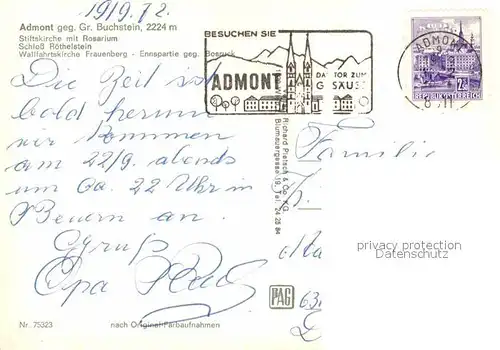 19/9.72.
Admont geg. Gr. Buchstein, 2224 m
Stiftskirche mit Rosarium
Schloß Röthelstein
Wallfahrtskirche Frauenberg - Ennspartie geg. Bosruck
BESUCHEN SIE
ADMONT DAS TOR ZUM
GESÄUSE
ADMONT
8 - 11
REPUBLIK ÖSTERREICH
Die Zeit ist
bald herum
wir kommen
am 22/9. abends
um Ca. 22 Uhr in
Beuern an.
Gruß
Opa
Familie
Richard Pietsch & Co. KG.
Blumauergasse 19, Tel. 24 25 84
privacy protection
akpool.com
PAG
63
Nr. 75323
nach Original-Farbaufnahmen